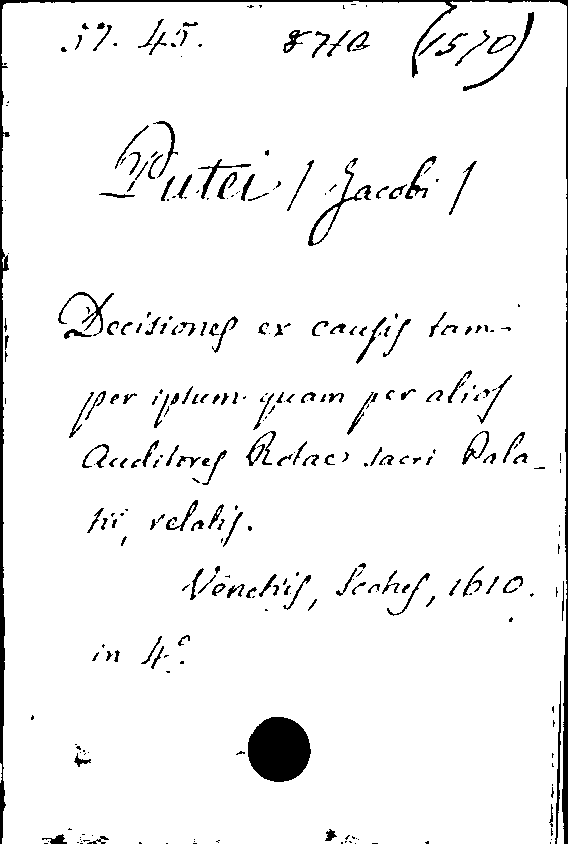 57. 45. 87HC (1570)
Putei / Jacobi /
Decisiones ex causis tam
per ipsum quam per alios
Auditores Rotae sacri Pala-
tii, relatis.
Venetiis, Scotus, 1610.
in 4º.